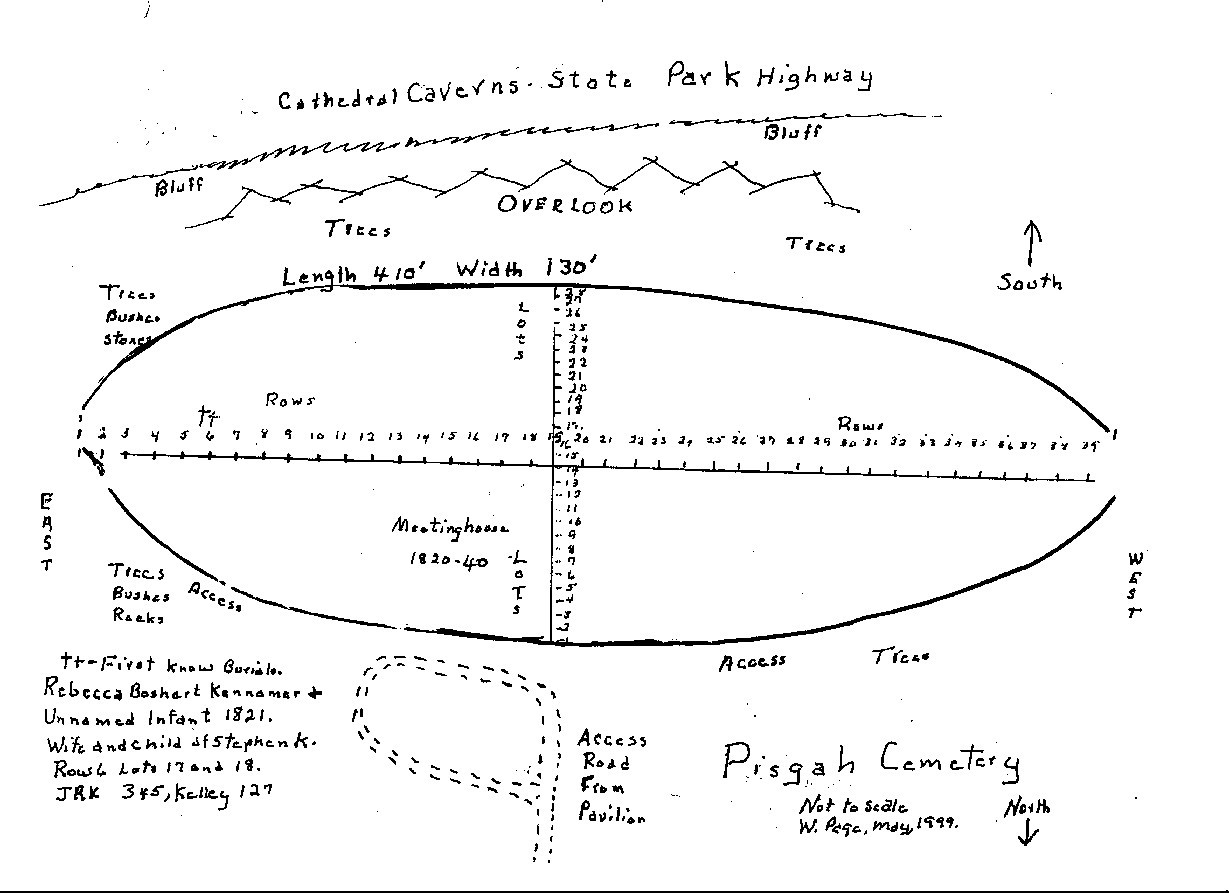 Cathedral Caverns. State Park Highway
Bluff
Bluff
OVERLOOK
Trees
Trees
South
Length 410' Width 130'
Trees
Bushes
Stones
Lots
28
27
26
25
24
23
22
21
20
19
18
17
16
15
14
13
12
11
10
9
8
7
6
5
4
3
2
1
Rows
Rows
††
1 2 3 4 5 6 7 8 9 10 11 12 13 14 15 16 17 18 19 20 21 22 23 24 25 26 27 28 29 30 31 32 33 34 35 36 37 38 39
EAST
WEST
Meetinghouse
1820-40
LOTS
Trees
Bushes
Rocks
Access
Access
Trees
††-First Know Burials.
Rebecca Boshart Kennamer +
Unnamed Infant 1821.
Wife and child of Stephen K.
Row 6 Lots 17 and 18.
JRK 345, Kelley 127
Access
Road
From
Pavilion
Pisgah Cemetery
Not to scale
W. Page, May, 1999.
North